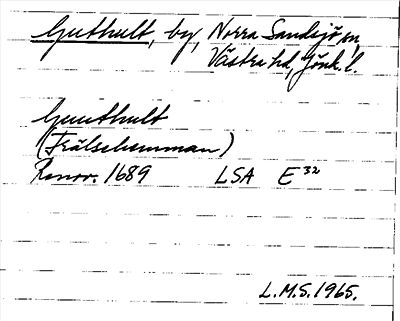 Guthult, by, Norra Sandsjö sn,
Västra hd, Jönk. l.
Gunthult
(Frälsehemman)
Renov. 1689 LSA E³²
L.M.S. 1965.